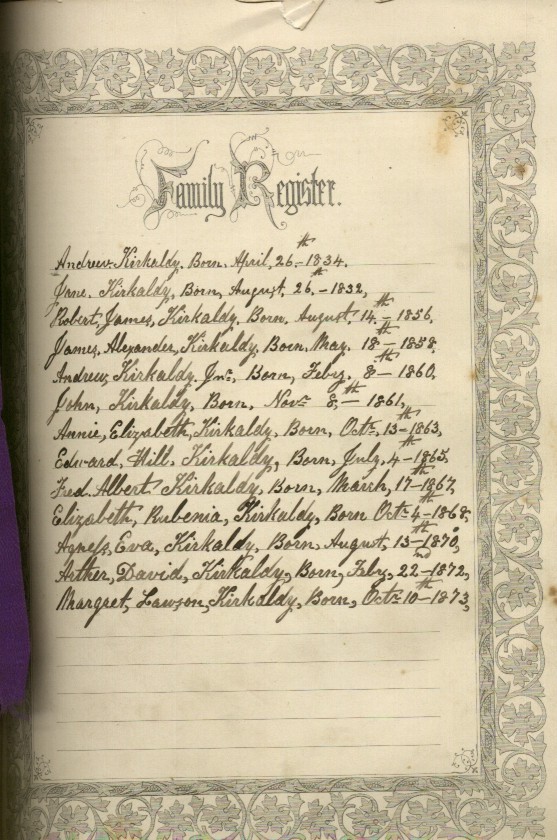 Family Register.
Andrew. Kirkaldy. Born. April, 26th - 1834.
Jane. Kirkaldy, Born, August, 26th - 1832,
Robert, James, Kirkaldy, Born. August 14th - 1856,
James, Alexander, Kirkaldy, Born. May. 18th - 1858,
Andrew, Kirkaldy. Jnr., Born, Febry. 8th - 1860.
John, Kirkaldy, Born, Novr 8th, - 1861,
Annie, Elizabeth, Kirkaldy, Born, Octr, 13th - 1863,
Edward, Hill. Kirkaldy, Born, July, 4th - 1865,
Fred. Albert. Kirkaldy, Born, March, 17th - 1867,
Elizabeth, Rubenia, Kirkaldy, Born Octr 4th - 1868,
Agness, Eva, Kirkaldy, Born, August, 13th - 1870,
Arther, David, Kirkaldy, Born, Feby, 22nd - 1872,
Margret, Lawson, Kirkaldy, Born, Octr 10th - 1873,